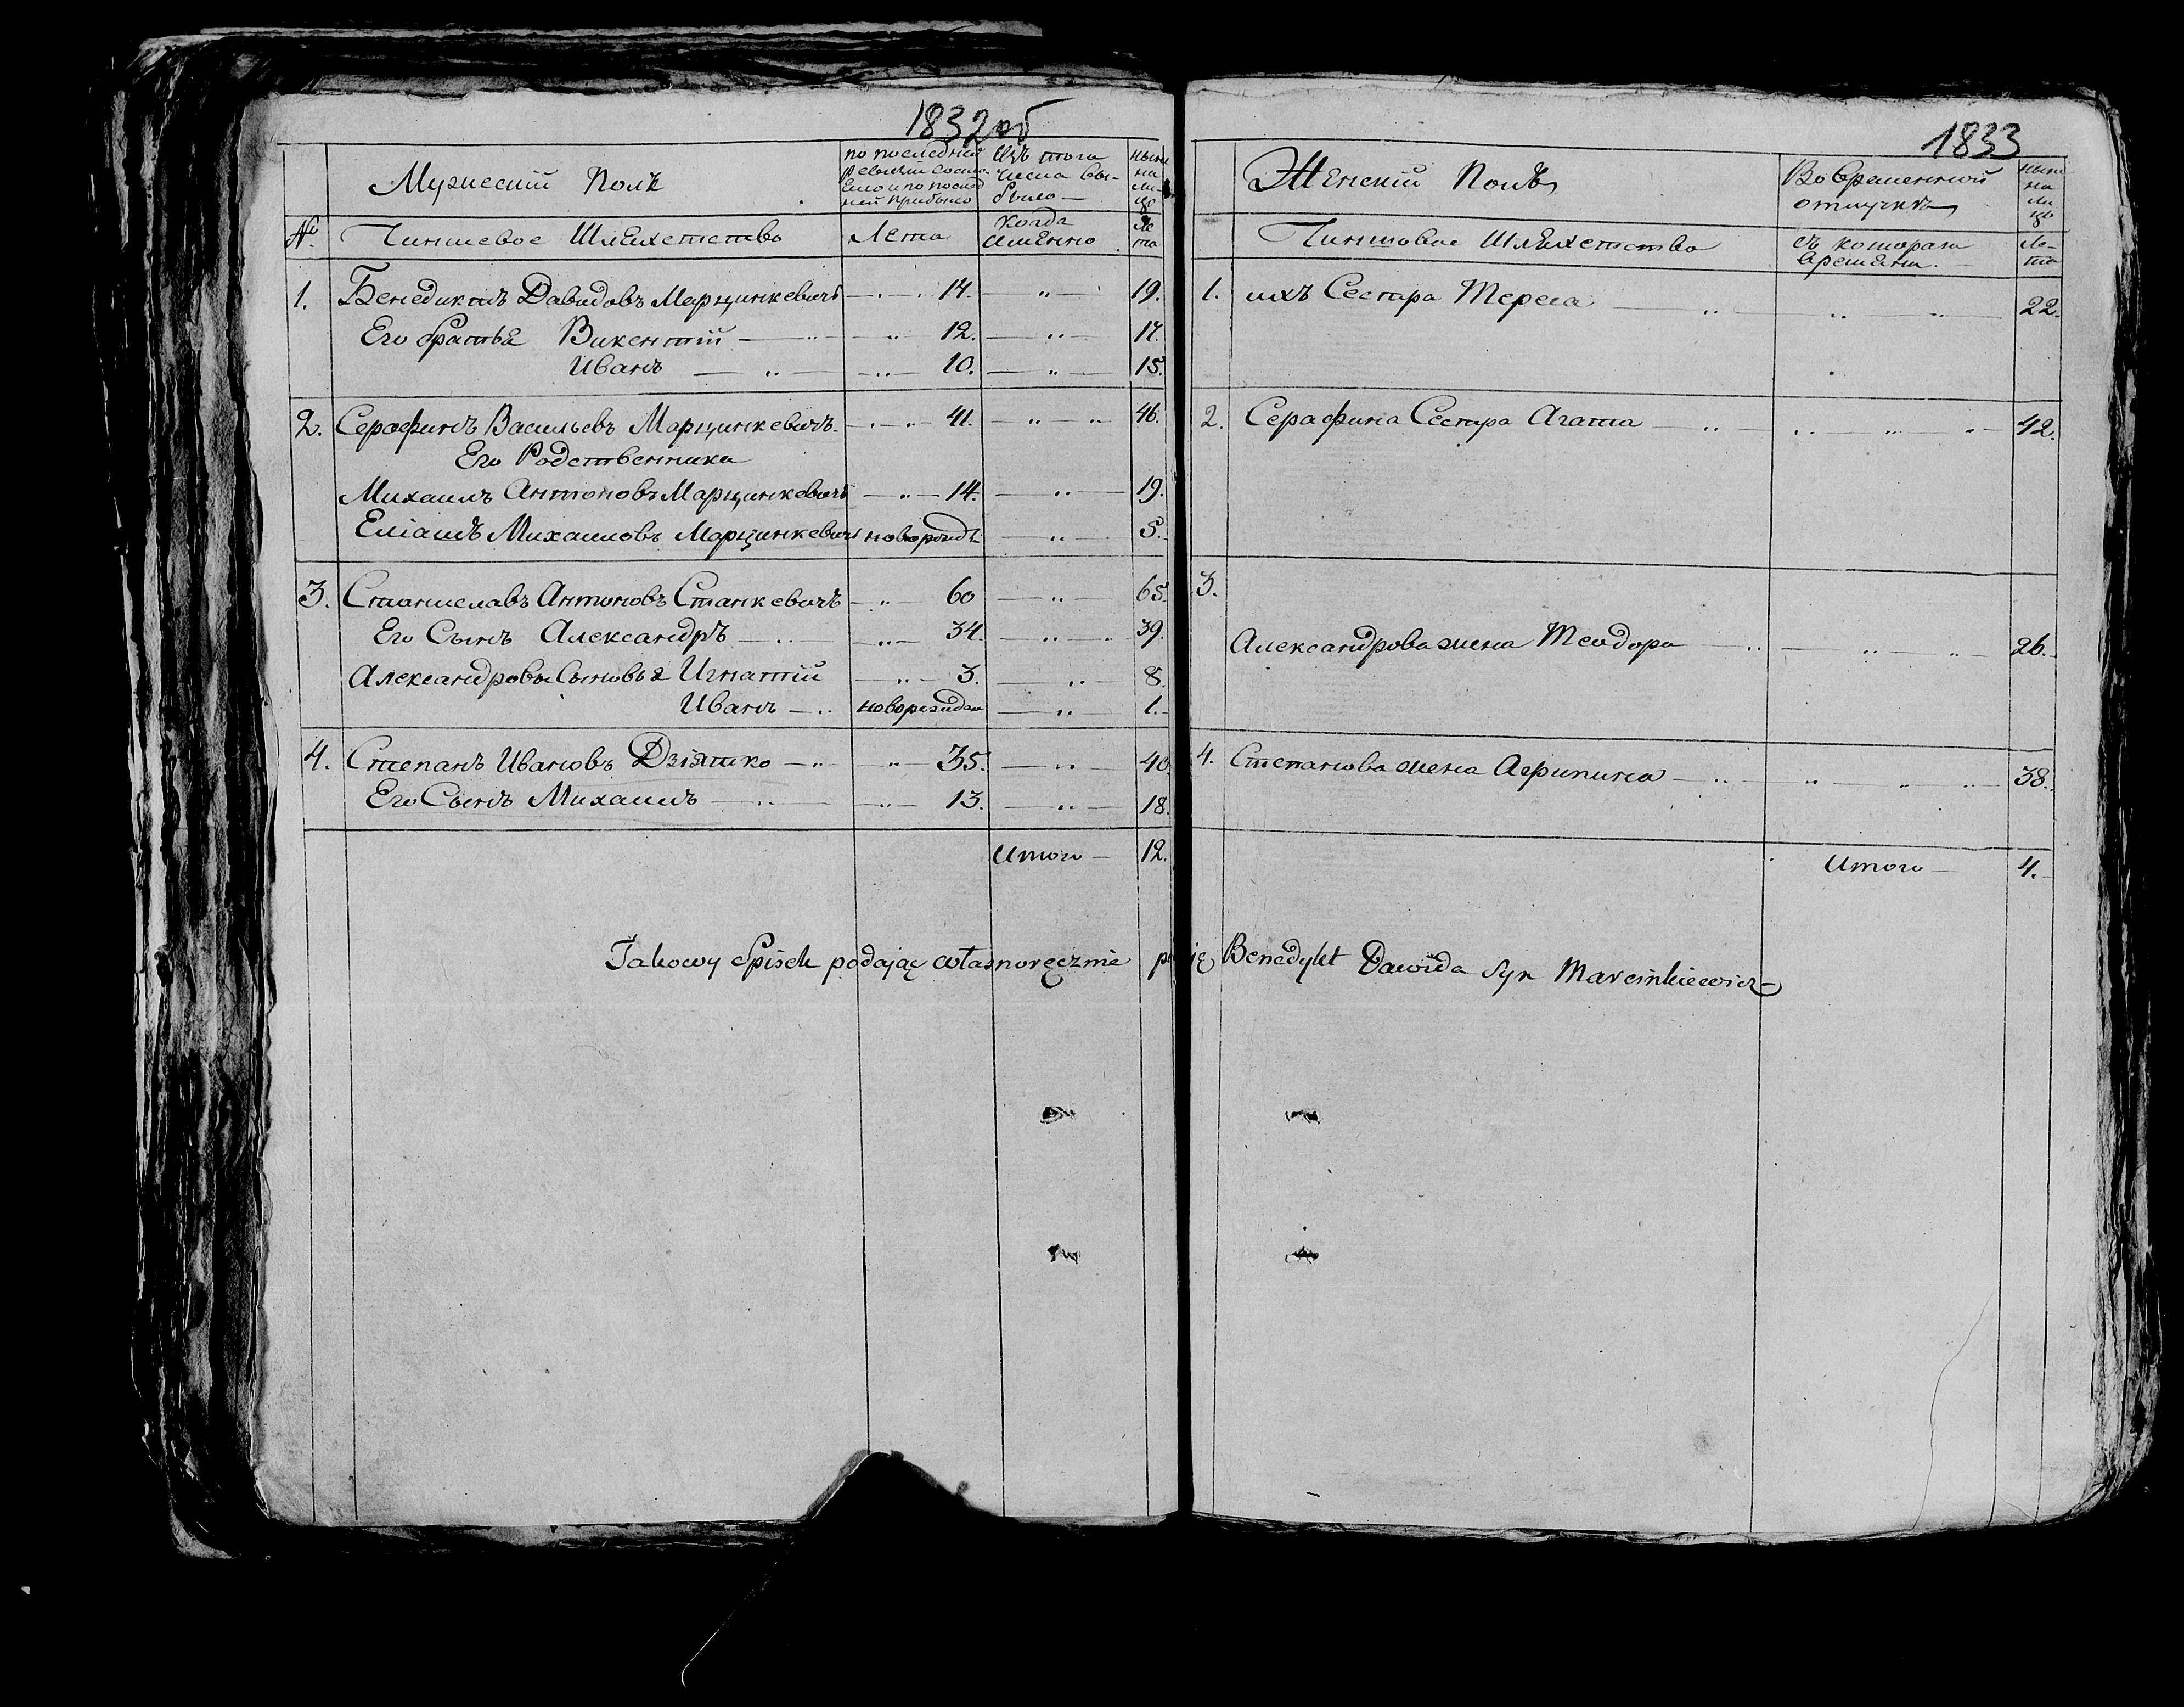 1832об
Мужеский Полъ
по последней
ревизии состо-
яло и по послед
ней прибыло
Изъ того
числа вы-
было —
ныне
на
ли-
цо
№ Чиншевое Шляхетство
Лета
Когда
именно
Ле
та
1. Бенедиктъ Давидовъ Марцинкевичъ 14. 19.
Его братья Викентий 12. 17.
Иванъ 10. 15.
2. Серафинъ Васильевъ Марцинкевичъ 41. 46.
Его Родственники
Михаилъ Антоновъ Марцинкевичъ 14. 19.
Еліашъ Михаиловъ Марцинкевичъ новорожд. 5.
3. Станиславъ Антоновъ Станкевичъ 60 65.
Его Сынъ Александръ 34. 39.
Александровы Сыновья Игнатий 3. 8.
Иванъ новорожден 1.
4. Степанъ Ивановъ Дзіятко 35. 40.
Его Сынъ Михаилъ 13. 18.
Итого — 12.
1833
Женский Полъ
Во временной
отлучке
ныне
на
ли
цо
Чиншовое Шляхетство
съ котораго
времяни.
Ле-
та
1. ихъ Сестра Тереса 22.
2. Серафина Сестра Агата 42.
3.
Александрова жена Теодора 26.
4. Степанова жена Агрипина 38.
Итого — 4.
Takowy Spisek podając własnoręcznie Benedykt Dawida Syn Marcinkiewicz